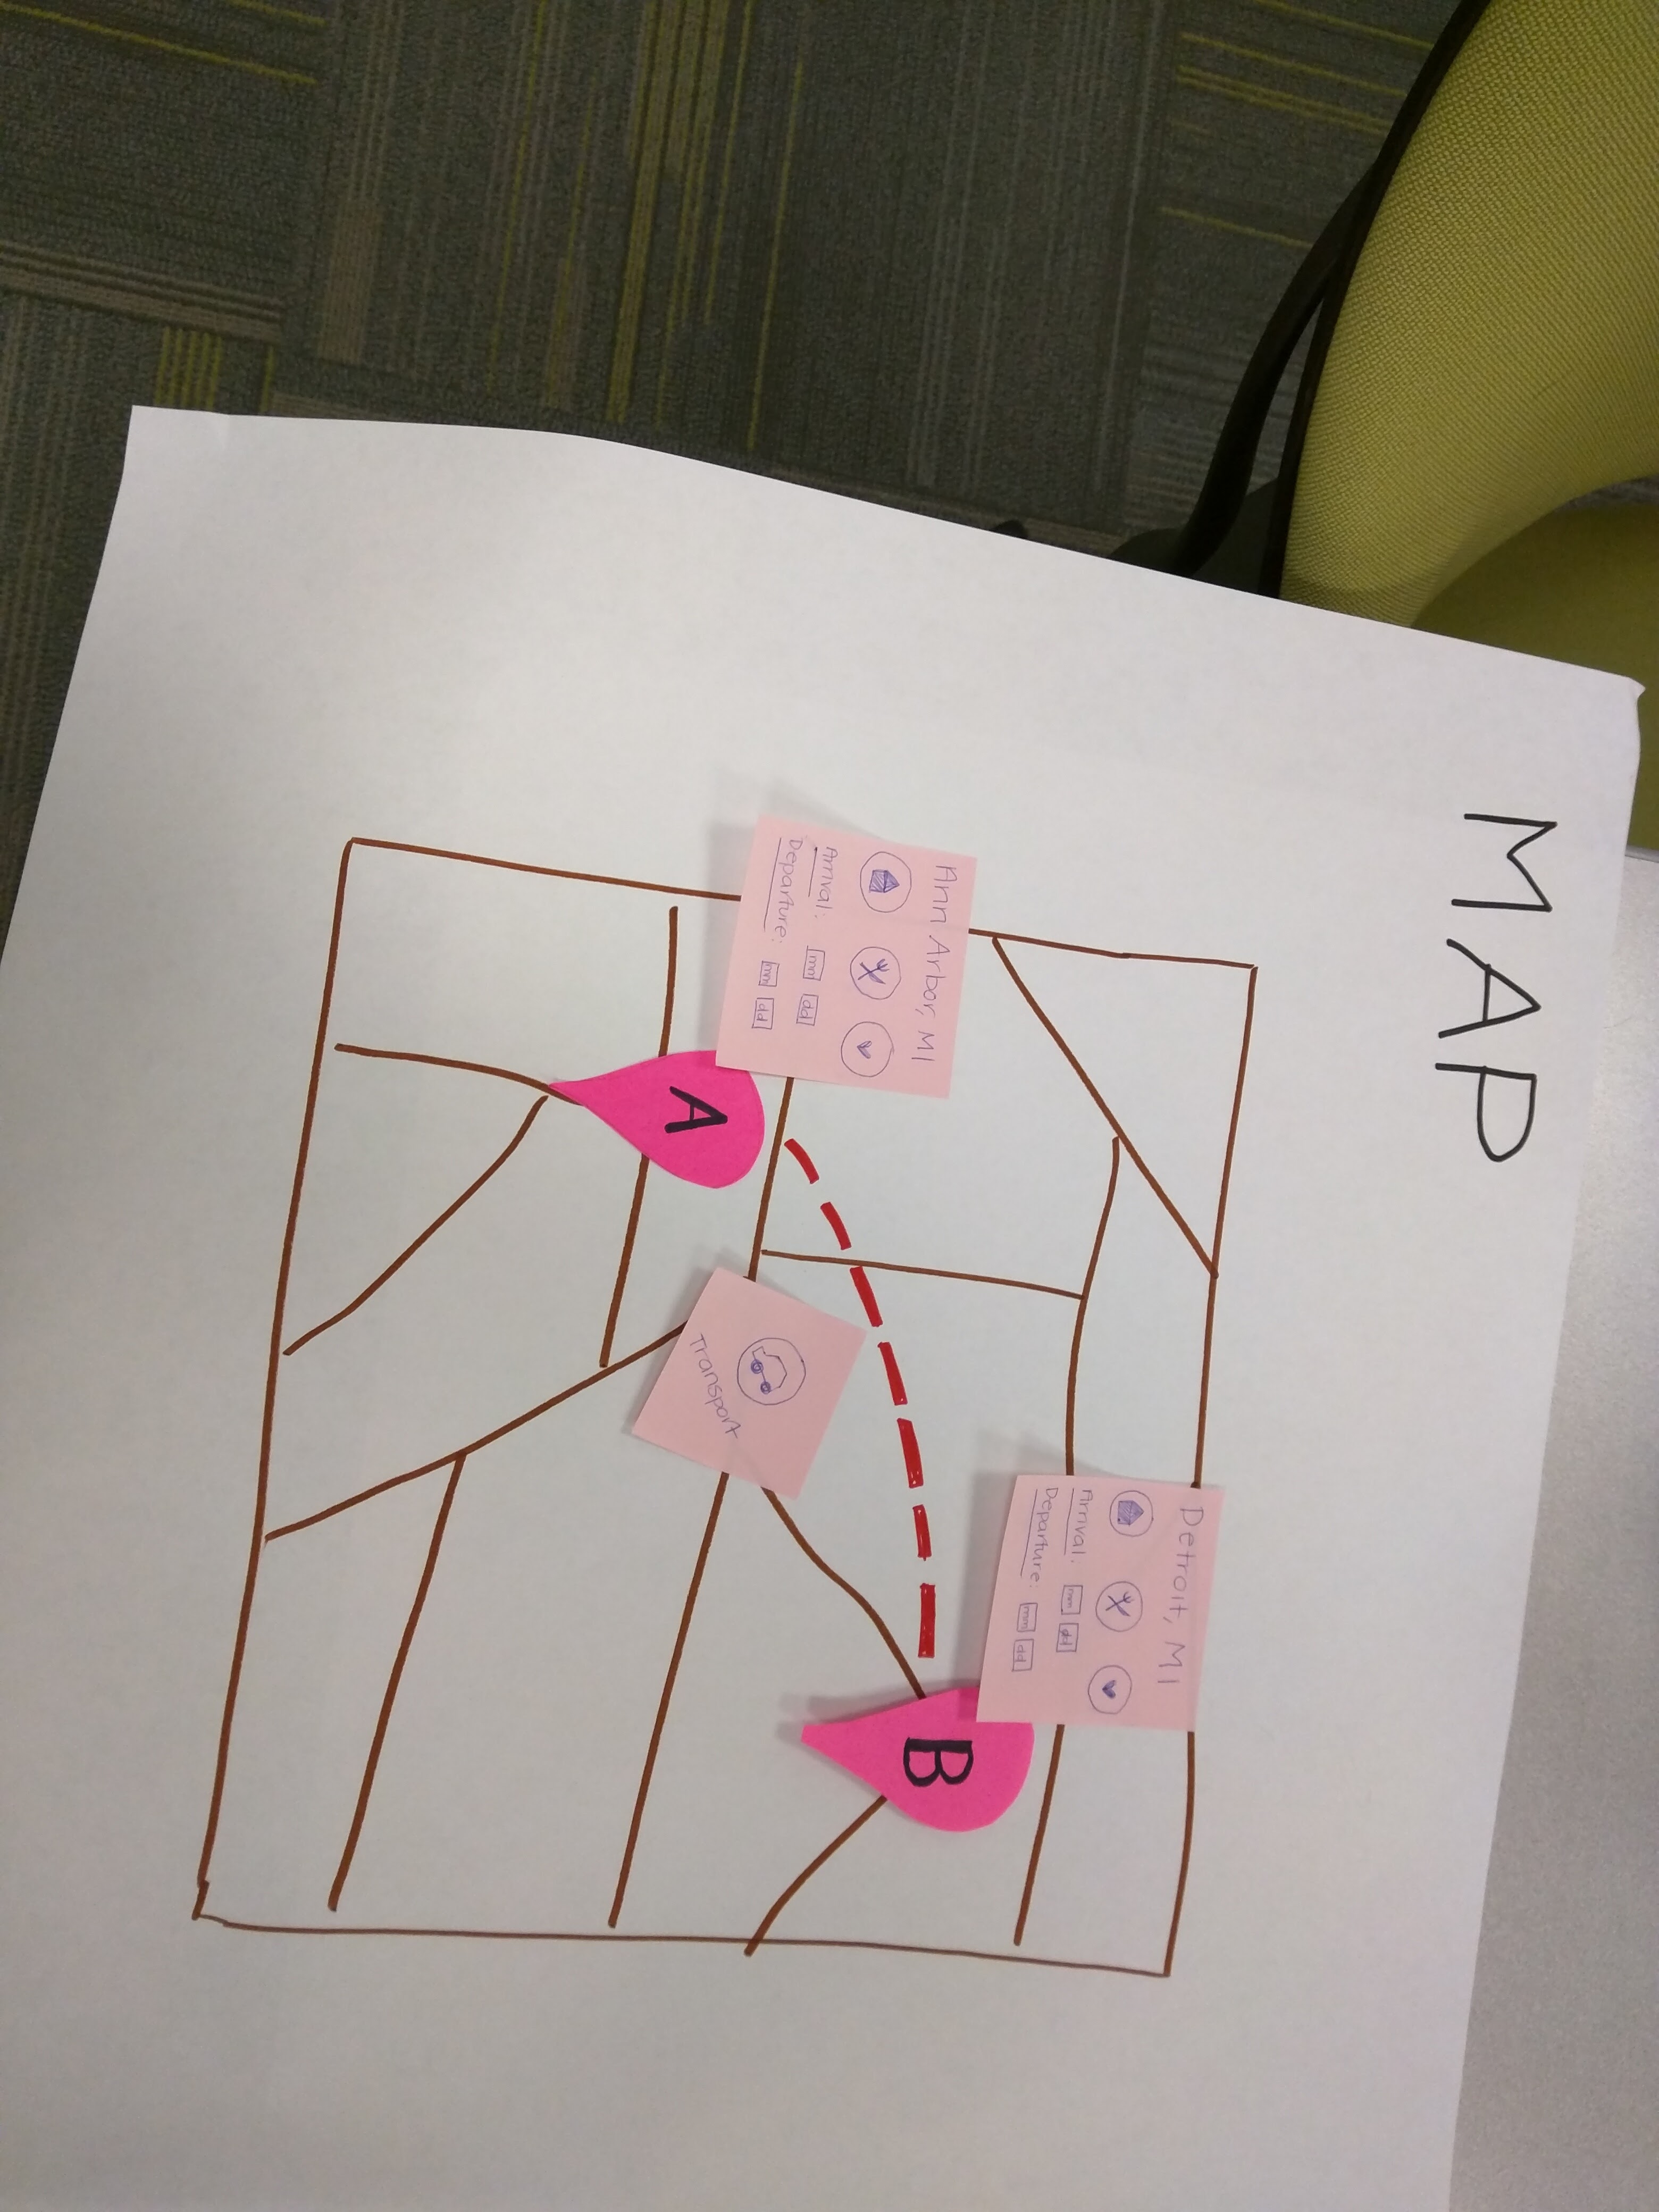 MAP
Ann Arbor, MI
Arrival: mm dd
Departure: mm dd
A
Transport
Detroit, MI
Arrival: mm dd
Departure: mm dd
B